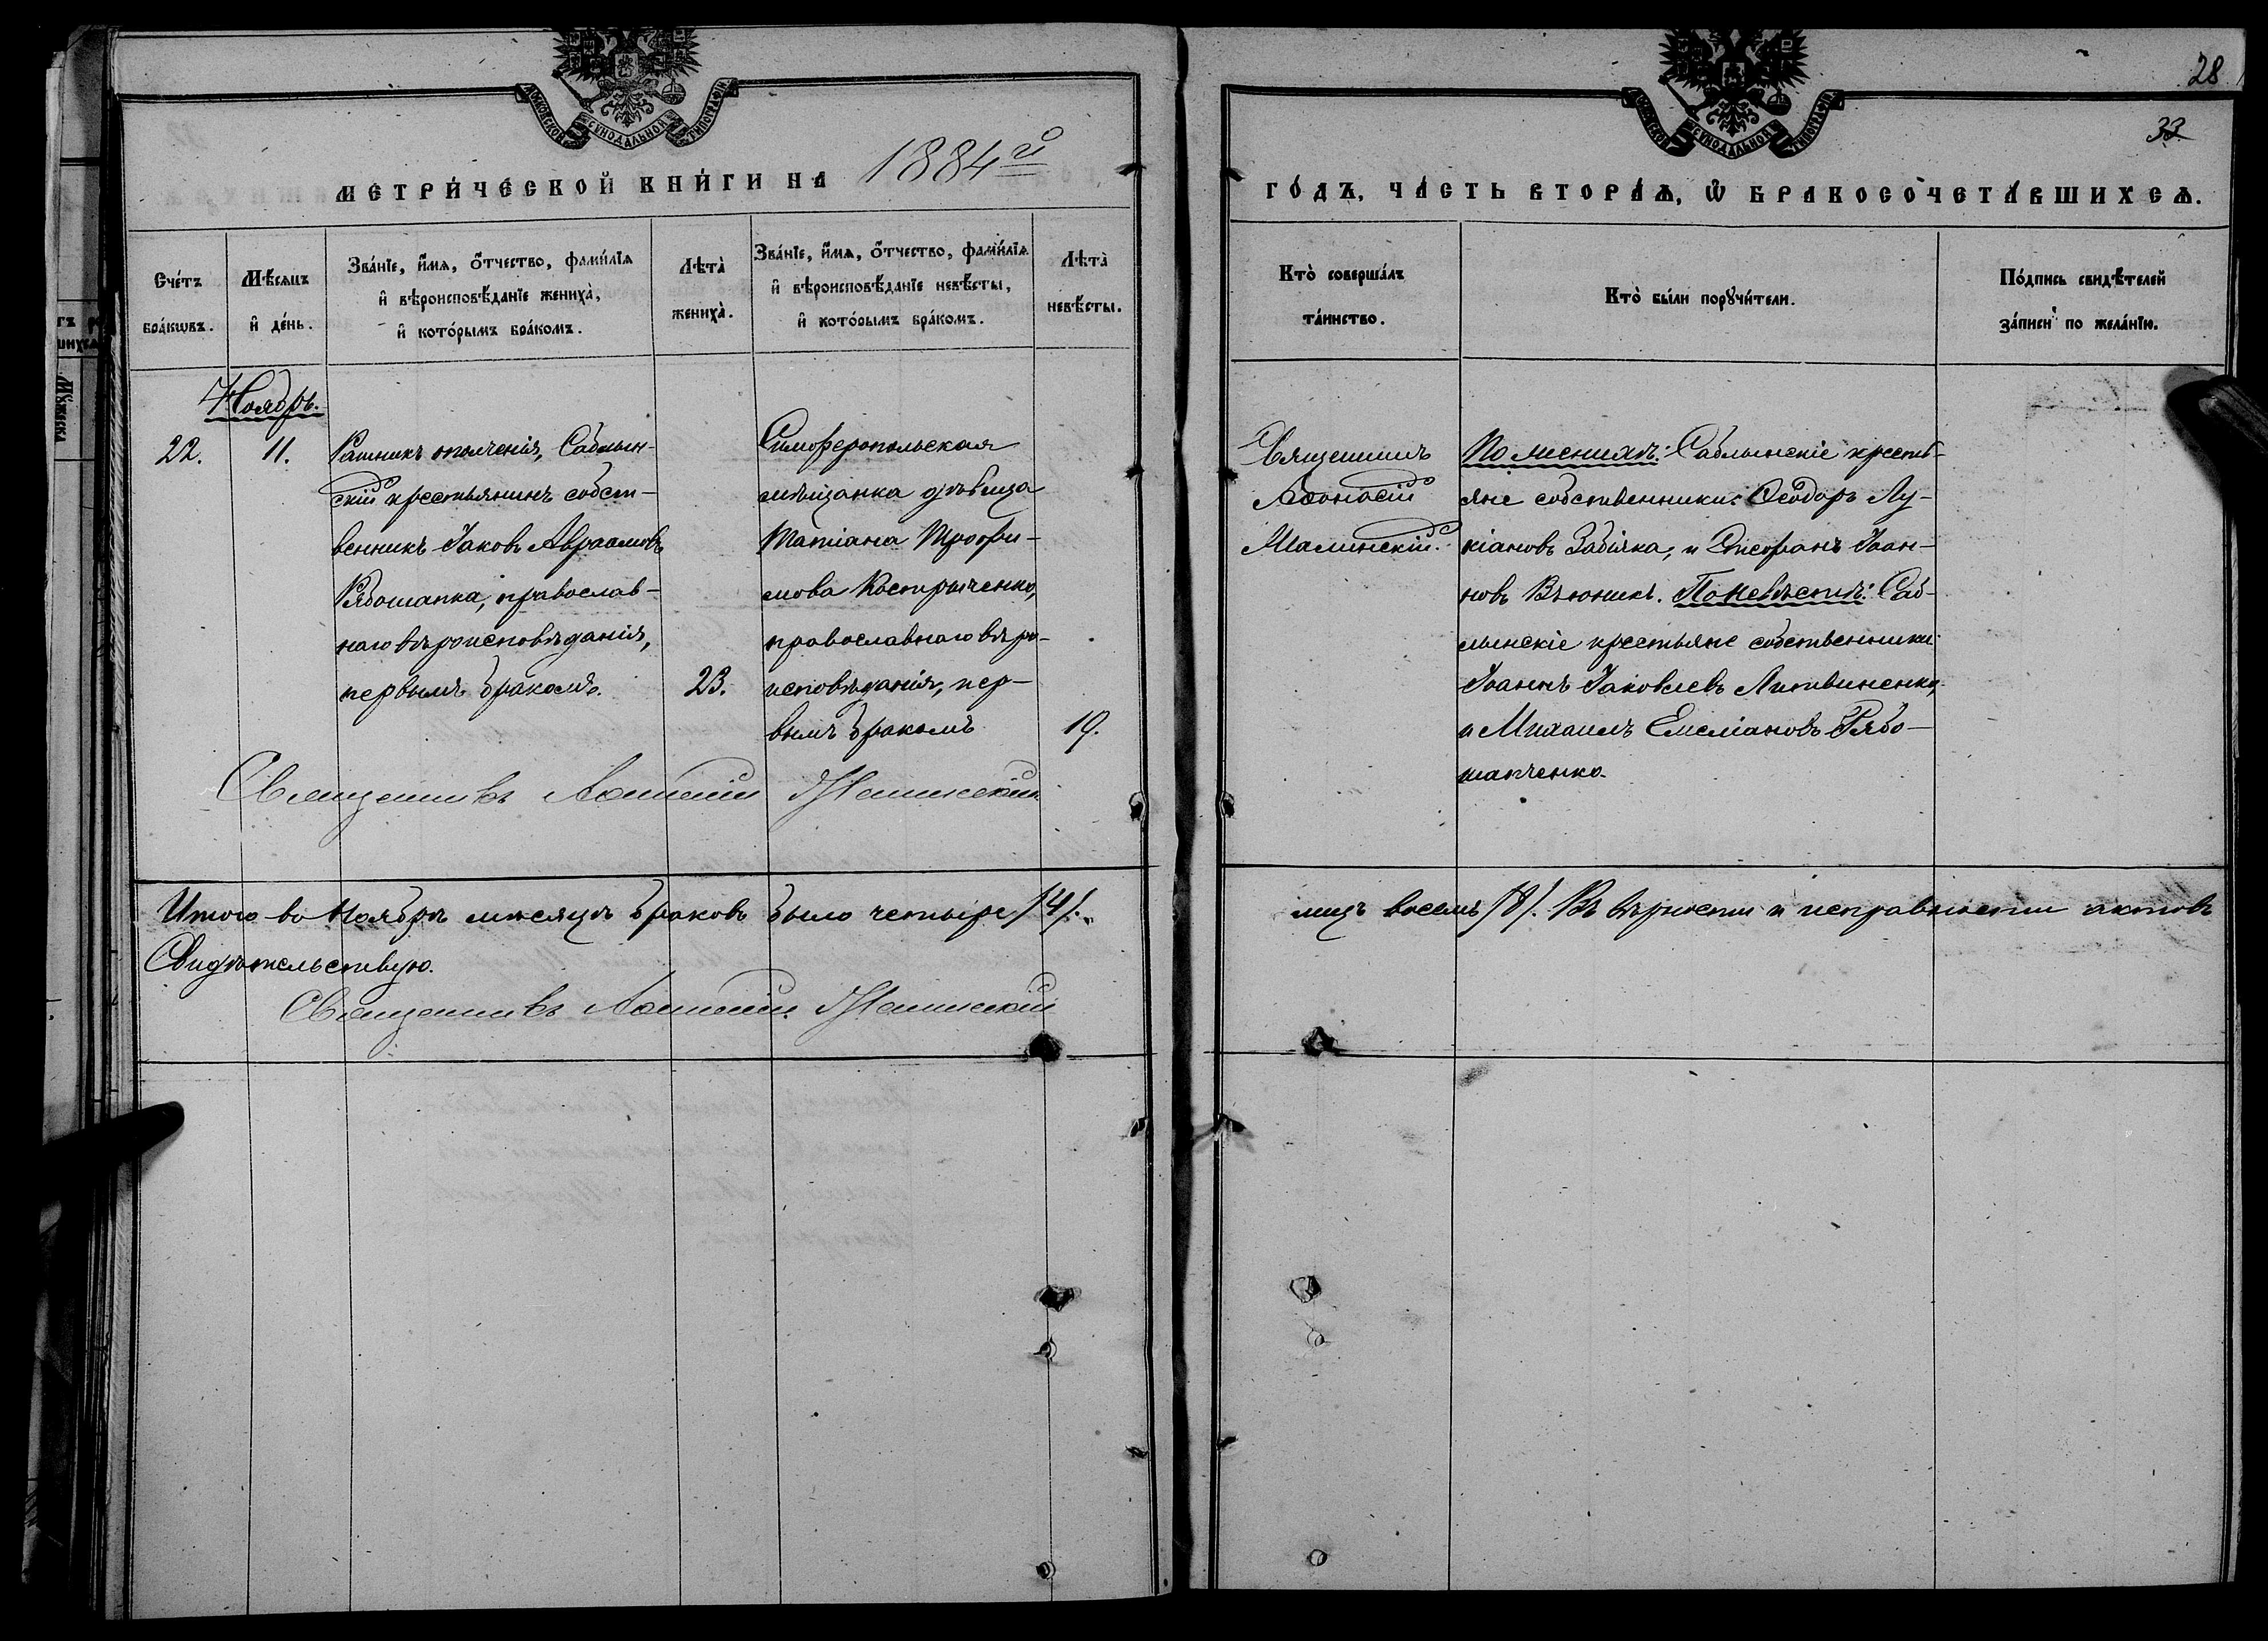 28
33
МОСКОВСКОЙ СѴНОДАЛЬНОЙ ТИПОГРАФІИ
МОСКОВСКОЙ СѴНОДАЛЬНОЙ ТИПОГРАФІИ
МЕТРИ́ЧЕСКОЙ КНИ́ГИ НА 1884й
ГО́ДЪ, ЧА́СТЬ ВТОРА́Ѧ, Ѡ҆ БРАКОСОЧЕТА́ВШИХСѦ.
Сче́тъ
бра́кѡвъ.
Мѣ́сѧцъ
и҆ де́нь.
Зва́нїе, и҆́мѧ, ѻ҆́тчество, фами́лїѧ
и҆ вѣроисповѣ́данїе жениха̀,
и҆ кото́рымъ бра́комъ.
Лѣта̀
жениха̀.
Зва́нїе, и҆́мѧ, ѻ҆́тчество, фами́лїѧ
и҆ вѣроисповѣ́данїе невѣ́сты,
и҆ кото́рымъ бра́комъ.
Лѣта̀
невѣ́сты.
Кто̀ соверша́лъ
та́инство.
Кто̀ бы́ли порꙋчи́тели.
По́дпись свидѣ́телей
за́писи по жела́нїю.
Ноябрь.
22.
11.
Ратникъ ополченія, Саблын-
скій крестьянинъ собст-
венникъ Іаковъ Авраамовъ
Рябошапка, православ-
наго вѣроисповѣданія,
первымъ бракомъ.
23.
Симферопольская
мѣщанка дѣвица
Татіана Трофи-
мова Костриченко,
православнаго вѣро-
исповѣданія, пер-
вымъ бракомъ
19.
Священникъ
Аѳонасій
Малинскій.
По женихѣ: Саблынскіе кресть-
яне собственники: Ѳеодоръ Лу-
кіановъ Забіяка, и Стефанъ Іоан-
новъ Вьюникъ. По невѣстѣ: Саб-
лынскіе крестьяне собственники:
Іоаннъ Іаковлевъ Литвиненко,
и Михаилъ Емеліановъ Рябо-
шапченко.
Священникъ Аѳанасій Малинскій
Итого въ Ноябрѣ мѣсяцѣ браковъ было четыре /4/.
лицъ восемь /8/. Въ вѣрности и исправности актовъ
Свидѣтельствую.
Священникъ Аѳанасій Малинскій